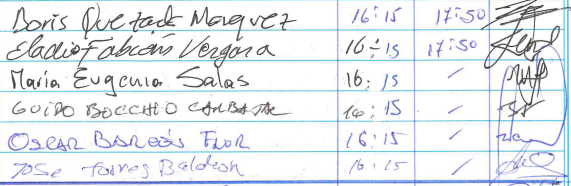 Boris Quezada Marquez 16:15 17:50
Eladio Fabián Vergara 16:15 17:50
María Eugenia Salas 16:15 /
GUIDO BOCCHIO CARBAJAL 16:15 /
OSCAR 16:15 /
JOSE Torres 16:15 /